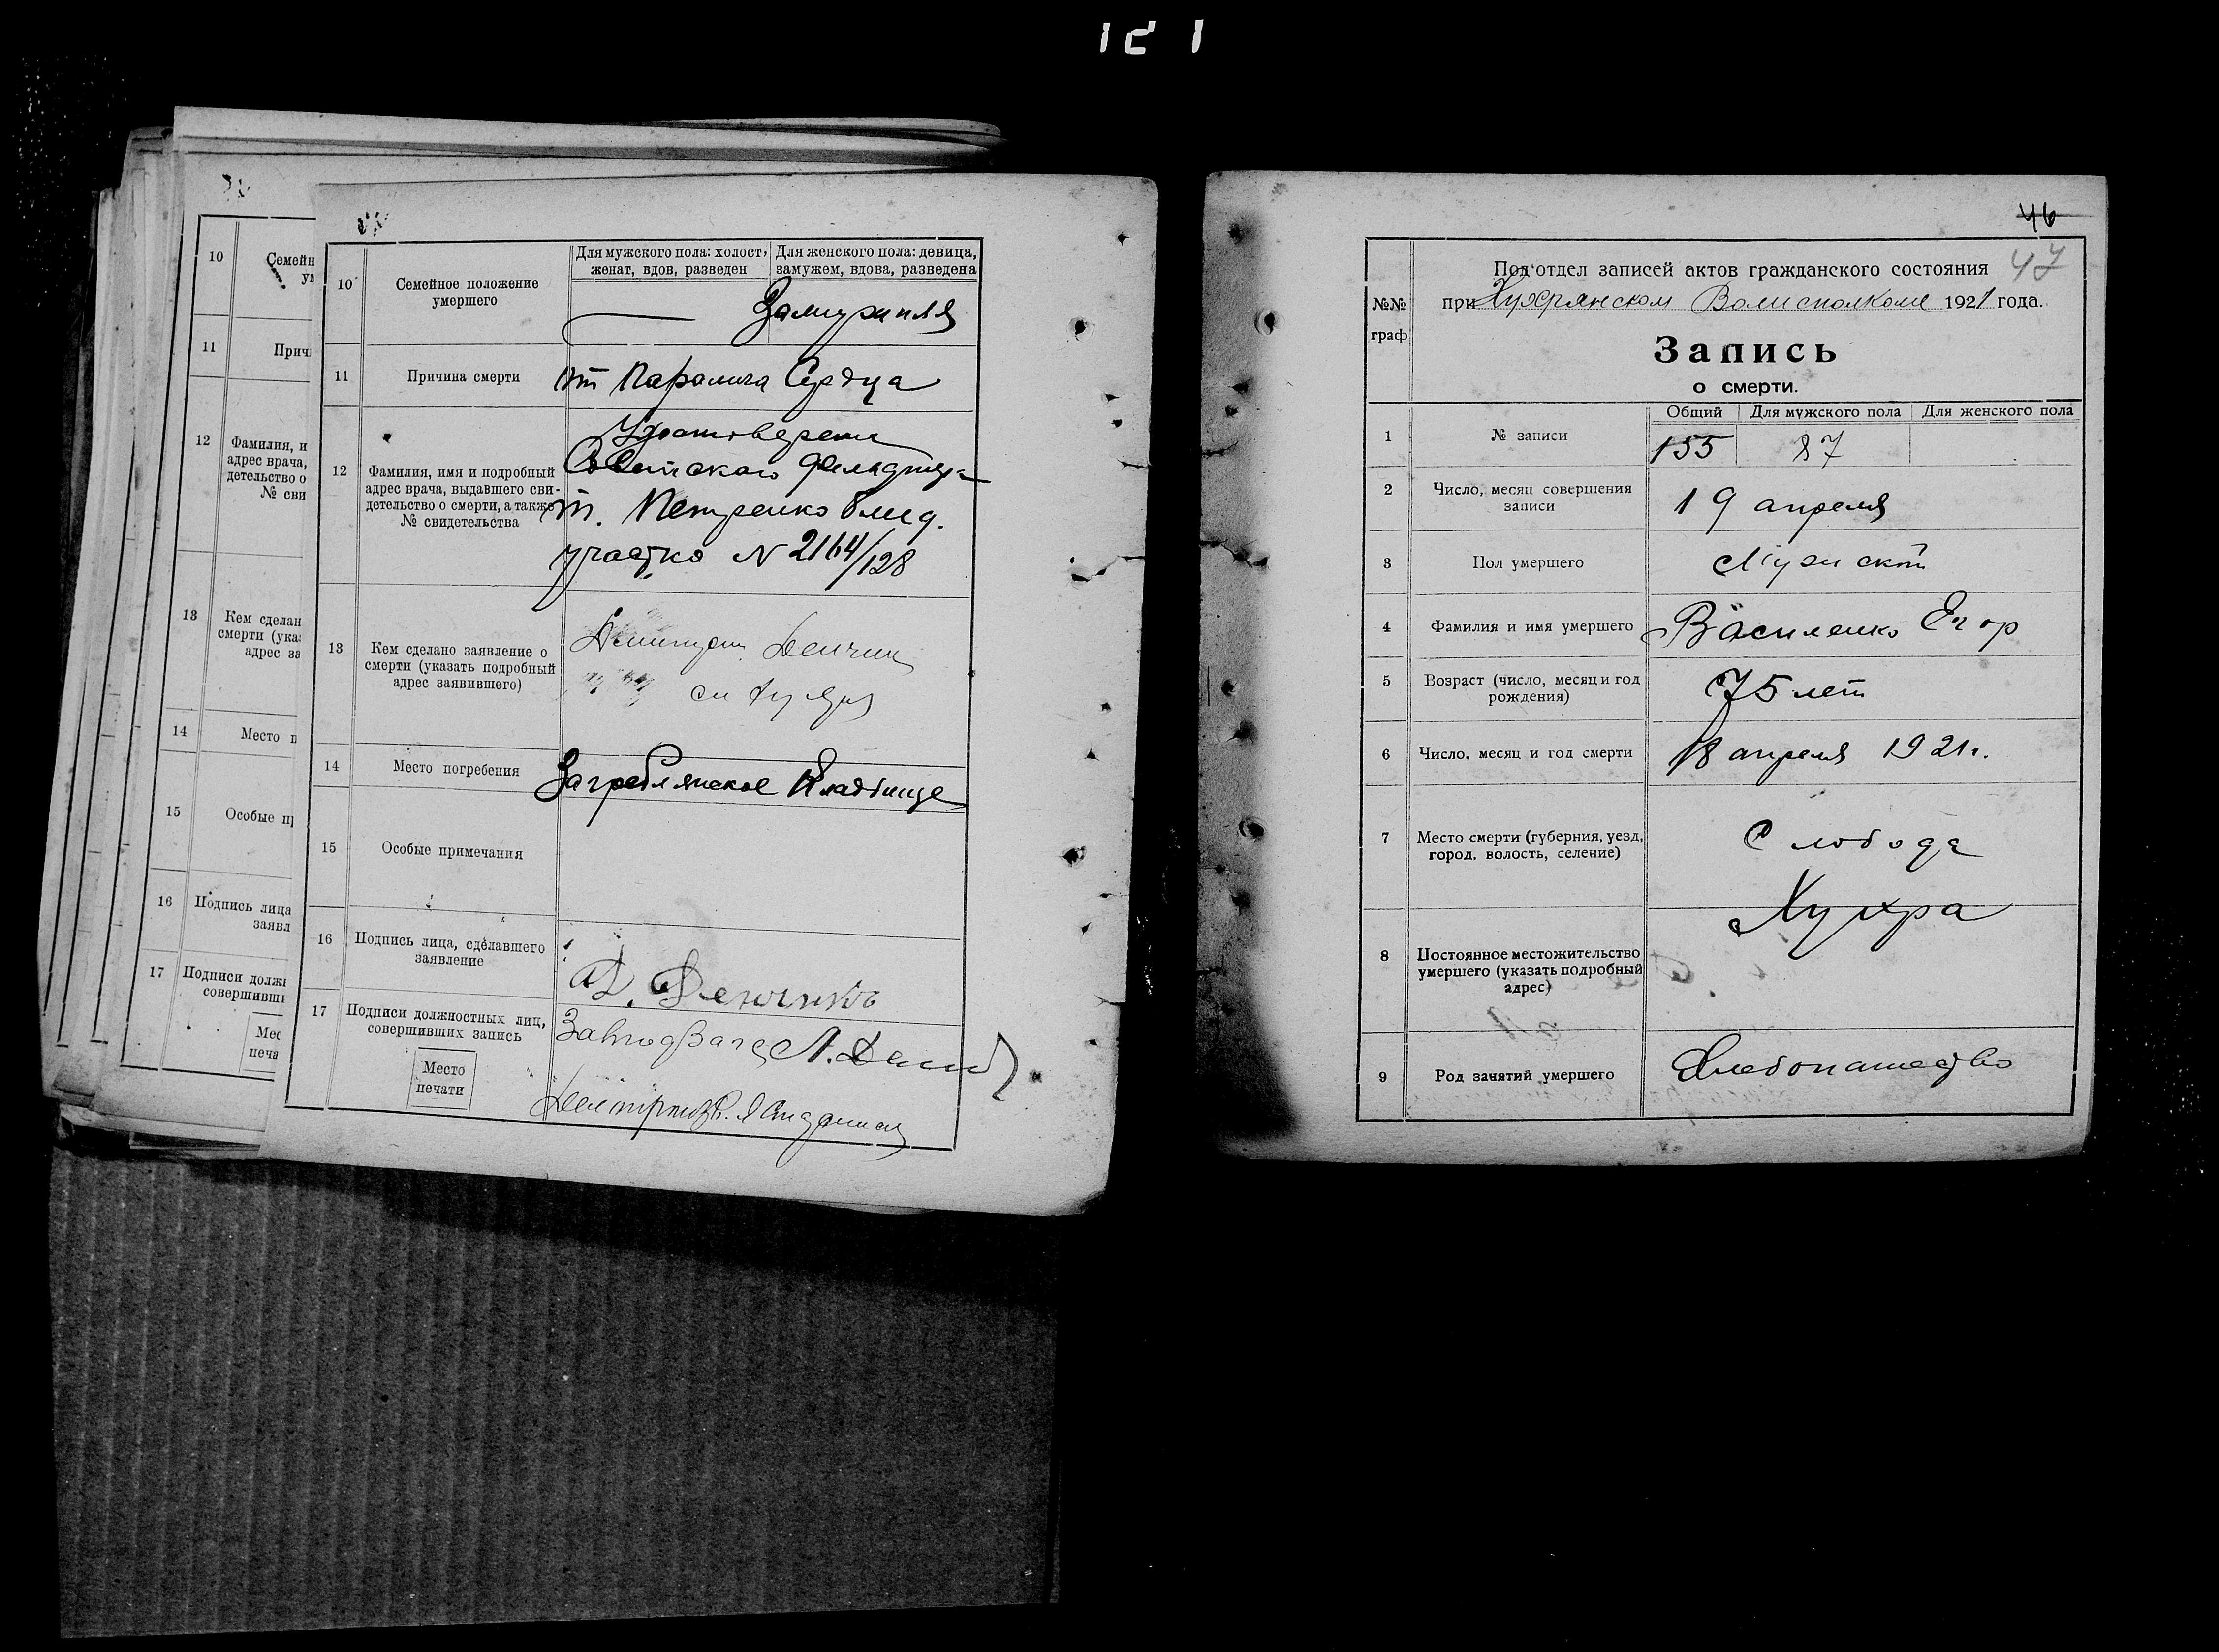 121
10
Семейн
ум
11
Причи
12
Фамилия, и
адрес врача,
детельство о
№ сви
13
Кем сделан
смерти (ука
адрес за
14
Место п
15
Особые п
16
Подпись лица
заявл
17
Подписи долж
совершивш
Мес
печа
10
Семейное положение
умершего
Для мужского пола: холост,
женат, вдов, разведен
Для женского пола: девица,
замужем, вдова, разведена
Замужняя
11
Причина смерти
от Паралича Сердца
12
Фамилия, имя и подробный
адрес врача, выдавшего сви-
детельство о смерти, а также
№ свидетельства
Удостоверение
Советского Фельдшера
т. Петренко 6 мед.
участка N 2164/128
13
Кем сделано заявление о
смерти (указать подробный
адрес заявившего)
14
Место погребения
Загреблянское Кладбище
15
Особые примечания
16
Подпись лица, сделавшего
заявление
Д.
17
Подписи должностных лиц,
совершивших запись
Место
печати
46
47
№№
граф
Под'отдел записей актов гражданского состояния
при Хухрянском Волисполкоме 1921 года.
Запись
о смерти.
1
№ записи
Общий
Для мужского пола
Для женского пола
155
87
2
Число, месяц совершения
записи
19 апреля
3
Пол умершего
Мужской
4
Фамилия и имя умершего
Василенко Егор
5
Возраст (число, месяц и год
рождения)
75 лет
6
Число, месяц и год смерти
18 апреля 1921 г.
7
Место смерти (губерния, уезд,
город, волость, селение)
Слобода
Хухра
8
Постоянное местожительство
умершего (указать подробный
адрес)
9
Род занятий умершего
Хлебопашество